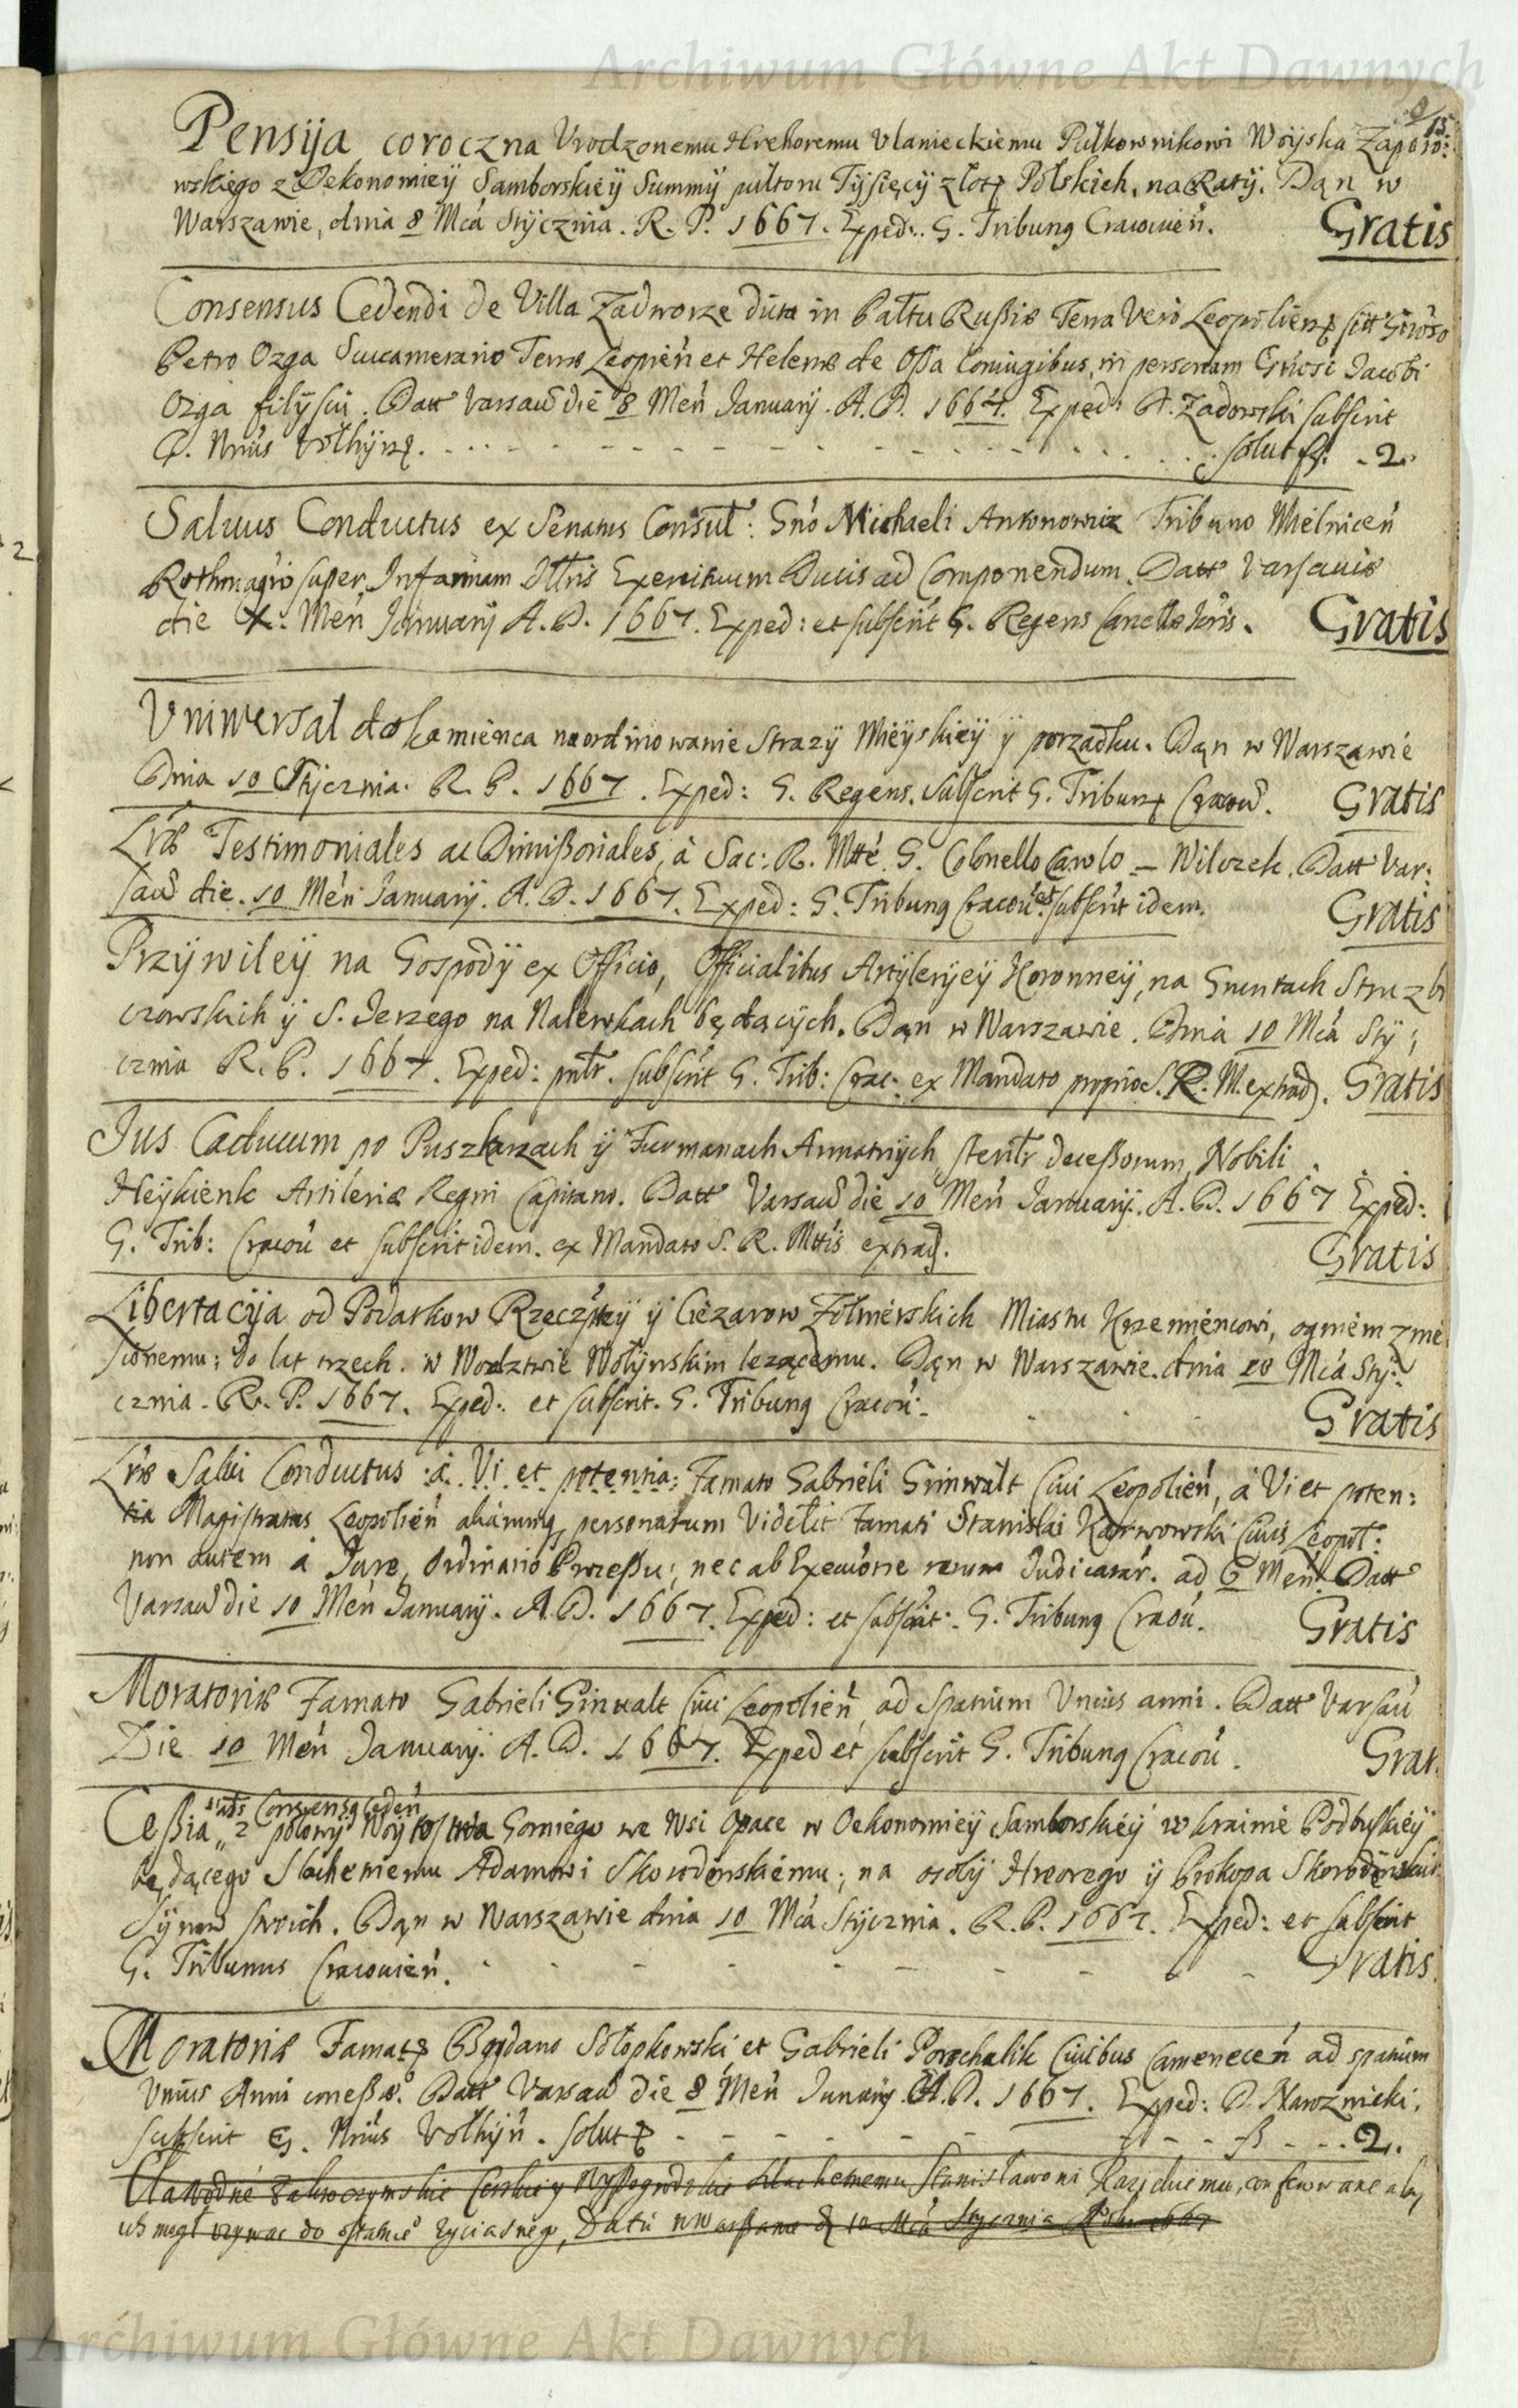 Archiwum Główne Akt Dawnych
8
13
Pensija coroczna Vrodzonemu Hrehoremu Vlanieckiemu Pułkownikowi Woyska Zaporo:
wskiego z Oekonomiey Samborskiey Summy pułtoru Tysięcy złot Polskich, na Raty. Dan w
Warszawie, dnia 8 Mca Stycznia. R. P. 1667. Exped: G. Tribung Cracouień. Gratis
Consensus Cedendi de Villa Zadworze dicta in Palttu Russiæ Terra Vero Leopolien sitt Gnoso
Petro Ozga Succamerario Terræ Leopień et Helenæ de Ossa Coniugibus, in personam Gnosi Jacobi
Ozga filij sui. Datt Varsau die 8 Meń January. A. D. 1667. Exped: A. Zadorski subscrit
G. Nrius Vołhijn. solut f: 2.
Saluus Conductus ex Senatus Consult: Gńo Michaeli Antonowicz Tribuno Mielniceń
Rothmagro super Infamiam Illris Exercituum Ducis ad Componendum. Datt Varsauiæ
die X. Meń January A. D. 1667. Exped: et subscrit G. Regens Cancellæ Ioris. Gratis
Vniwersał do Kamienca na ordinowanie Strazy Mieyskiey y porządku. Dan w Warszawie
Dnia 10 Stycznia. R. P. 1667. Exped: G. Regens. Subscrit G. Tribun Cracou. Gratis
Lræ Testimoniales ac Dimissoriales, à Sac: R. Mtte G. Colonello Carolo - Wilczek. Datt Var:
sau die. 10 Meń January. A. D. 1667. Exped: G. Tribung Cracou: et subscrit idem. Gratis
Przywiley na Gospody ex Officio, Officialibus Artyleryey Koronney, na Gruntach Struzb
czowskich y S. Jerzego na Nalewkach będących. Dan w Warszawie. Dnia 10 Mca Sty:
cznia R. P. 1667. Exped: pntr. subscrit G. Trib: Crac: ex Mandato proprio S. R. M. extrad. Gratis
Jus Caducum po Puszkarzach y Furmanach Armatnych, sterilr decessorum, Nobili
Heykienk Artileriæ Regni Capitano. Datt Varsau die 10 Meń January. A. D. 1667 Exped:
G. Trib: Cracou et subscrit idem. ex Mandato S. R. Mttis extrad. Gratis
Libertacyja od Podatkow Rzeczptey y Cięzarow Zołnierskich Miastu Krzemieńcowi, ogniem znie
sionemu; do lat trzech. w Wodztwie Wołynskim lezącemu. Dan w Warszawie. dnia 10 Mca Sty:
cznia. R. P. 1667. Exped: et subscrit. G. Tribung Cracou. Gratis
Lræ Salui Conductus :à Vi et potentia: Famato Gabrieli Grinwalt Ciui Leopolień, à Vi et poten:
tia Magistratus Leopolień aliarumq personarum Videlit Famati Stanislai Karwowski Ciuis Leopol:
non autem à Jure, Ordinario Processu; nec ab Execuōne rerum Judicatar. ad 6 Meń. Datt
Varsau die 10 Meń January. A. D. 1667. Exped: et subscrit. G. Tribung Cracou. Gratis
Moratoriæ Famato Gabrieli Grinwalt Ciui Leopolień, ad spatium Vnius anni. Datt Varsau
Die 10 Meń January. A. D. 1667. Exped et subscrit G. Tribung Cracou. Grat.
siue Consensg cedeń
Cessia z połowy Woytostwa Gorniego we Wsi Opace w Oekonomiey Samborskiey w krainie Podbuskiey
będącego Slachetnemu Adamowi Skorodenskiemu; na osoby Hreorego y Prokopa Skorodenskich
Synow swoich. Dan w Warszawie dnia 10 Mca Stycznia. R. P. 1667. Exped: et subscrit
G. Tribunus Cracouień. Gratis
Moratoriæ Famat Bogdano Sołopkowski et Gabrieli Porochalik Ciuibus Cameneceń ad spatium
Vnius Anni concessæ. Datt Varsau die 8 Meń January A. D. 1667. Exped: D. Nawoznicki.
subscrit G. Nrius Vołhyń. solut - - - ß - - 2.
Stanisławowi
uz mogł uzywac do ostatnie zycia snego, Datt 10 Mca Stycznia Roku 1667
Archiwum Główne Akt Dawnych